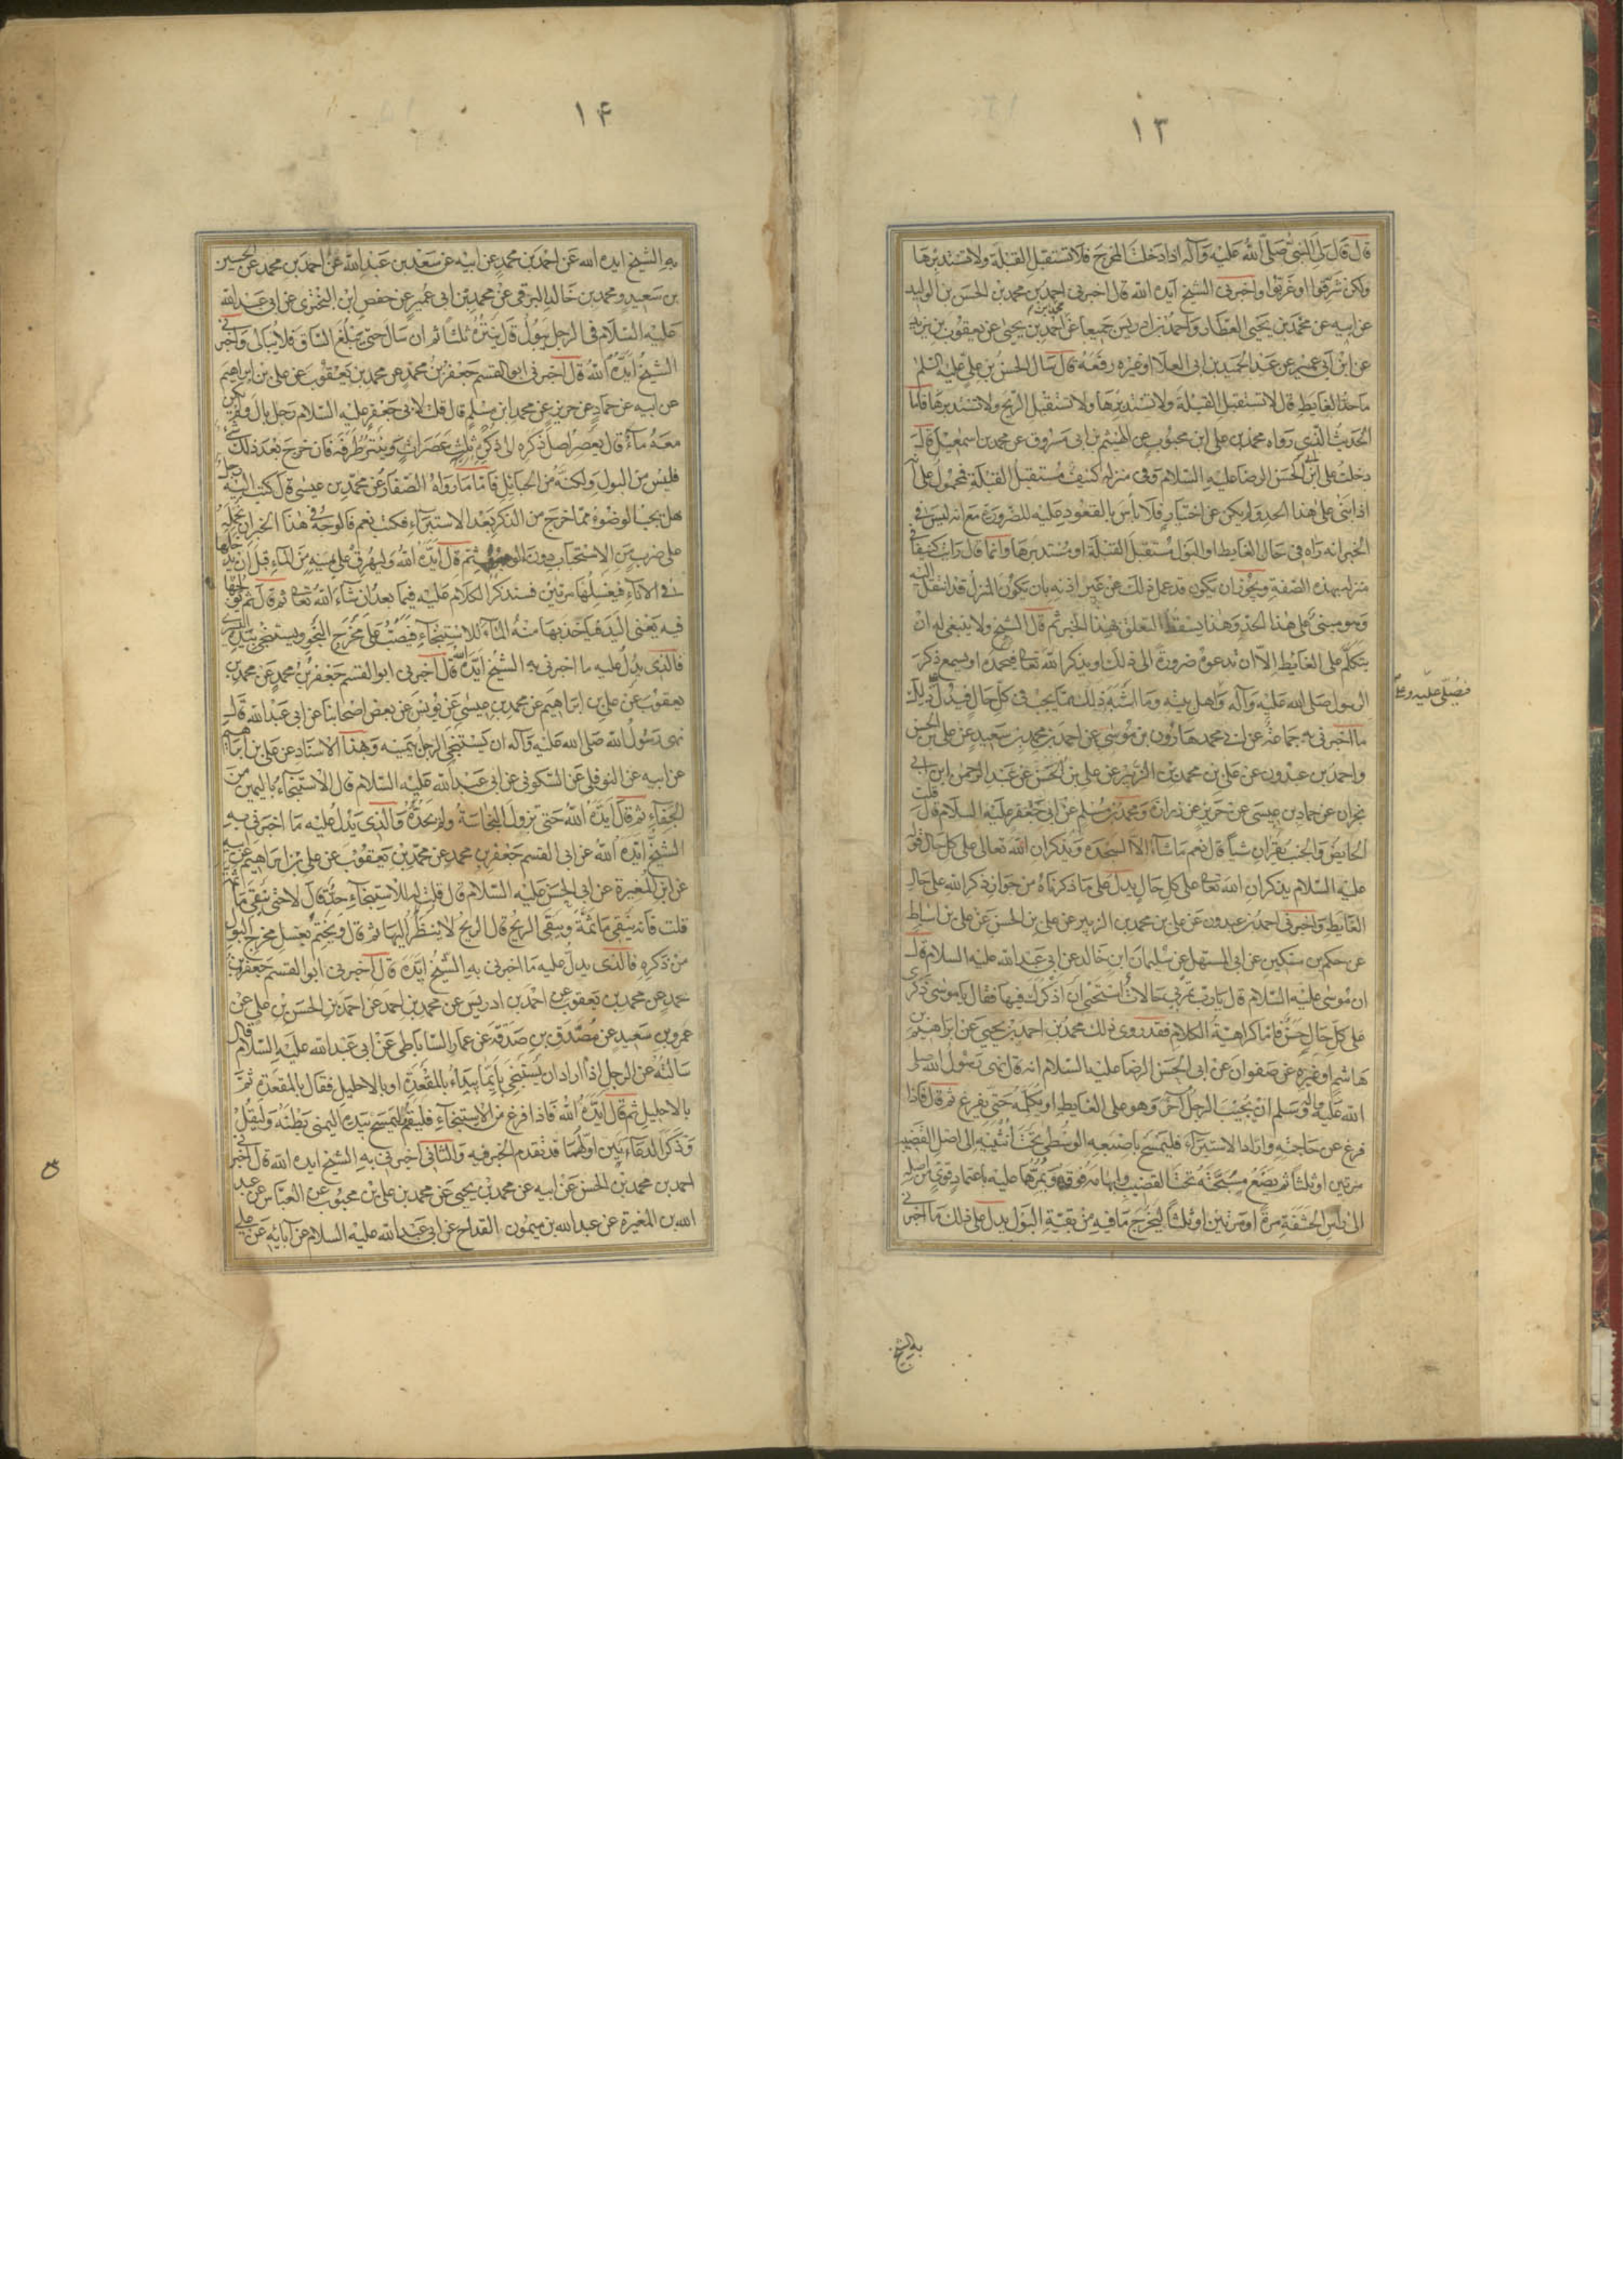 ١٣
قال قال لي النبي صلى الله عليه وآله اذا دخلت المخرج فلا تستقبل القبلة ولا تستدبرها
ولكن شرقوا او غربوا واخبرنى الشيخ ايده الله قال اخبرنى احمد بن محمد بن الحسن بن الوليد
عن ابيه عن محمد بن يحيى العطار واحمد بن ادريس جميعا عن محمد بن احمد بن يحيى عن يعقوب بن يزيد
عن ابن ابى عمير عن عبد الحميد بن ابى العلا او غيره رفعه قال سال الحسن بن علي عليه السلم
ما حد الغايط قال لا تستقبل القبلة ولا تستدبرها ولا تستقبل الريح ولا تستدبرها فاما
الحديث الذى رواه محمد بن على ابن محبوب عن الهيثم بن ابى مسروق عن محمد بن اسمعيل قال
دخلت على ابى الحسن الرضا عليه السلام وفى منزله كنيف مستقبل القبلة فمحمول على انه
اذا بنى على هذا الحد ولم يكن عن اختيار فلا باس بالقعود عليه للضرورة مع انه ليس فى
الخبر انه رآه فى حال الغايط او البول مستقبل القبلة او مستدبرها وانما قال رايت كنيفا فى
منزله بهذه الصفة ويجوز ان يكون قد عمل ذلك عن غير اذنه بان يكون المنزل قد انتقل اليه
وهو مبنى على هذا الحد وهذا يسقط التعلق بهذا الخبر ثم قال الشيخ ولا ينبغى له ان
يتكلم على الغايط الا ان تدعوه ضرورة الى ذلك او يذكر الله تعالى فيحمده او يسمع ذكر
الرسول صلى الله عليه وآله واهل بيته وما اشبه ذلك مما يجب فى كل حال فيدل على ذلك
فيصلى عليه و
ما اخبرنى به جماعة عن ابى محمد هارون بن موسى عن احمد بن محمد بن سعيد عن على بن الحسن
واحمد بن عبدون عن على بن محمد بن الزبير عن على بن الحسن عن عبد الرحمن ابن ابى
نجران عن حماد بن عيسى عن حريز عن زرارة ومحمد بن مسلم عن ابى جعفر عليه السلام قال قلت
الحايض والجنب يقران شيا قال نعم ما شاء الا السجدة ويذكران الله تعالى على كل حال فقوله
عليه السلام يذكران الله تعالى على كل حال يدل على ما ذكرناه من جواز ذكر الله على حال
الغايط واخبرنى احمد بن عبدون عن على بن محمد بن الزبير عن على بن الحسن عن على بن اسباط
عن حكم بن مسكين عن ابى المستهل عن سليمان ابن خالد عن ابى عبد الله عليه السلام قال
ان موسى عليه السلام قال يا رب تمر بى حالات استحيى ان اذكرك فيها فقال يا موسى ذكرى
على كل حال حسن فاما كراهية الكلام فقد روى ذلك محمد بن احمد بن يحيى عن ابراهيم بن
هاشم او غيره عن صفوان عن ابى الحسن الرضا عليه السلام انه قال نهى رسول الله صلى
الله عليه وآله وسلم ان يجيب الرجل آخر وهو على الغايط او يكلمه حتى يفرغ ثم قال فاذا
فرغ عن حاجته واراد الاستبراء فليمسح باصبعه الوسطى تحت انثييه الى اصل القضيب
مرتين او ثلثا ثم يضع مسبحته تحت القضيب وابهامه فوقه ويمرهما عليه باعتماد قوى من اصله
الى راس الحشفة مرة او مرتين او ثلثا ليخرج ما فيه من بقية البول يدل على ذلك ما اخبرنى
به الشيخ
١۴
به الشيخ ايده الله عن احمد بن محمد عن ابيه عن سعد بن عبد الله عن احمد بن محمد عن الحسين
بن سعيد ومحمد بن خالد البرقى عن محمد بن ابى عمير عن حفص ابن البخترى عن ابى عبد الله
عليه السلام فى الرجل يبول قال ينتره ثلثا ثم ان سال حتى يبلغ الساق فلا يبالى واخبرنى
الشيخ ايده الله قال اخبرنى ابو القسم جعفر بن محمد عن محمد بن يعقوب عن على بن ابراهيم
عن ابيه عن حماد عن حريز عن محمد ابن مسلم قال قلت لابى جعفر عليه السلام رجل بال ولم يكن
معه ماء قال يعصر اصل ذكره الى ذكره ثلث عصرات وينتر طرفه فان خرج بعد ذلك شىء
فليس من البول ولكنه من الحبايل فاما ما رواه الصفار عن محمد بن عيسى قال كتب اليه رجل
هل يجب الوضوء مما خرج من الذكر بعد الاستبراء فكتب نعم فالوجه فى هذا الخبر ان نحمله
على ضرب من الاستحباب دون الوجوب ثم قال ايده الله وليهرق على يمينه من الماء قبل ان يدخلها
فى الاناء فيغسلها مرتين فسنذكر الكلام عليه فيما بعد ان شاء الله تعالى ثم قال ثم يولجها
فيه يعنى اليد فياخذ بها منه الماء للاستنجاء فيصب على مخرج النجو ويستنجى بيده اليسرى
فالذى يدل عليه ما اخبرنى به الشيخ ايده الله قال اخبرنى ابو القسم جعفر بن محمد عن محمد بن
يعقوب عن على بن ابراهيم عن محمد بن عيسى عن يونس عن بعض اصحابنا عن ابى عبد الله قال
نهى رسول الله صلى الله عليه وآله ان يستنجى الرجل بيمينه وبهذا الاسناد عن على بن ابراهيم
عن ابيه عن النوفلى عن السكونى عن ابى عبد الله عليه السلام قال الاستنجاء باليمين من
الجفاء ثم قال ايده الله حتى تزول النجاسة ولم يحده والذى يدل عليه ما اخبرنى به
الشيخ ايده الله عن ابى القسم جعفر بن محمد عن محمد بن يعقوب عن على بن ابراهيم عن ابيه
عن ابن المغيرة عن ابى الحسن عليه السلام قال قلت له للاستنجاء حد قال لا حتى ينقى ما ثمة
قلت فانه ينقى ما ثمة ويبقى الريح قال الريح لا ينظر اليها ثم قال ويختم بغسل مخرج البول
من ذكره فالذى يدل عليه ما اخبرنى به الشيخ ايده قال اخبرنى ابو القسم جعفر بن
محمد عن محمد بن يعقوب عن احمد بن ادريس عن محمد بن احمد عن احمد بن الحسن بن على عن
عمرو بن سعيد عن مصدق بن صدقة عن عمار الساباطى عن ابى عبد الله عليه السلام قال
سالته عن الرجل اذا اراد ان يستنجى بايما يبداء بالمقعدة او بالاحليل فقال بالمقعدة ثم
بالاحليل ثم قال ايده الله فاذا فرغ من الاستنجاء فليقم وليمسح بيده اليمنى بطنه وليقل
وذكر الدعاءين اولهما قد تقدم الخبر فيه والثانى اخبرنى به الشيخ ايده الله قال اخبرنى
احمد بن محمد بن الحسن عن ابيه عن محمد بن يحيى عن محمد بن على بن محبوب عن العباس عن عبد
الله بن المغيرة عن عبد الله بن ميمون القداح عن ابى عبد الله عليه السلام عن آبائه عن على